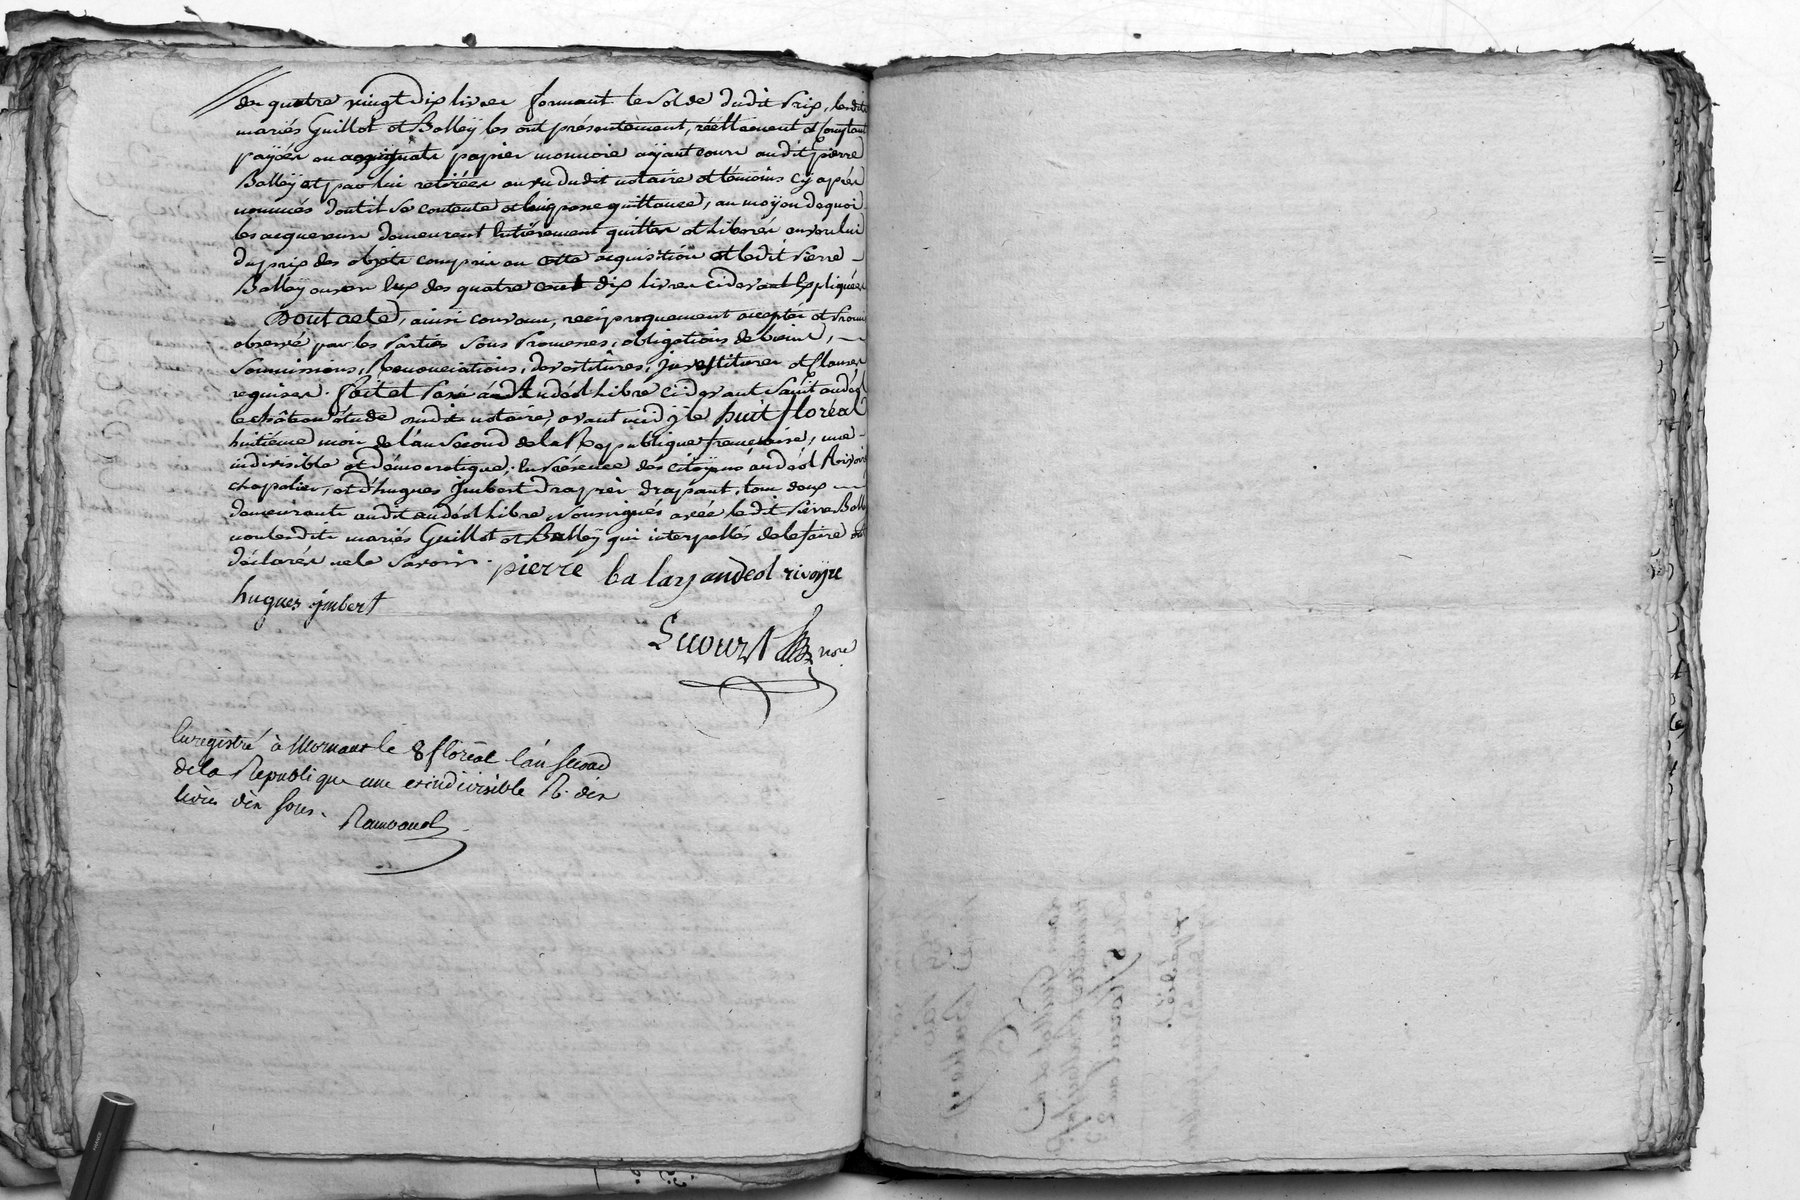 de quatre vingt dix livres formant le solde dudit prix, lesdits
mariés Guillot et Balleÿ les ont présentement, réellement et comptant
payées en assignats papier monnoie ayant cours audit pierre
Balleÿ et par lui retirées au vu dudit notaire et témoins cy après
nommés dont il se contente et leur passe quittance, au moÿen de quoi
les acquereurs demeurent entiérement quittes et liberés envers lui
du prix des objets compris en cette acquisition et ledit Pierre
Balleÿ envers eux des quatre cent dix livres cidevant expliquées
Dont acte, ainsi convenu, reciproquement accepté et promis
observé par les Parties sous Promesses, obligations de biens,
soumissions, Renonciations, devestitures, investitures et clauses
requises. fait et Passé à Andéol Libre cidevant Saint andéol
le château étude dudit notaire, avant midÿ le huit floréal
huitiéme mois de l'an Second de la République française, une
indivisible et démocratique, en Présence des citoÿens andéol Rivoire
chapelier, et d'hugues Imbert drapier drapant, tous deux
demeurants audit andéol Libre, Soussignés avec ledit Pierre Balleÿ
non lesdits mariés Guillot et Balleÿ qui interpellés de le faire ont
déclarés ne le Savoir.
pierre balay andéol rivoyre
hugues imbert
nore
Enregistré à Mornant le 8 floréal l'an second
de la Republique une et indivisible R. dix
livres dix sous.